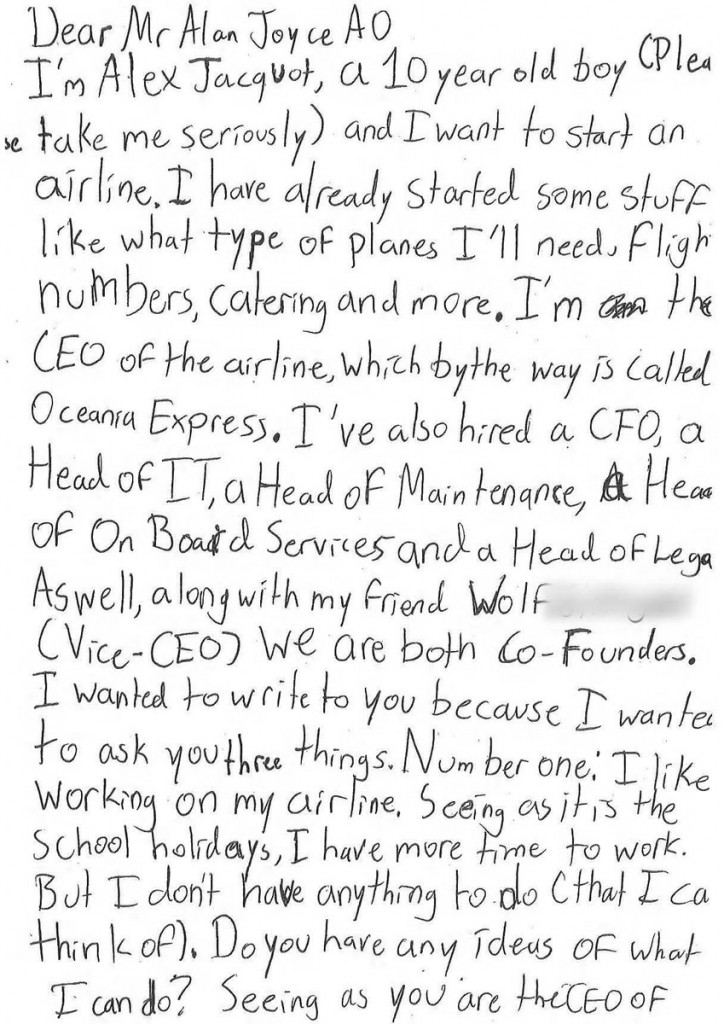 Dear Mr Alan Joyce AO
I'm Alex Jacquot, a 10 year old boy (Plea
se take me seriously) and I want to start an
airline. I have already started some stuff
like what type of planes I'll need, fligh
numbers, catering and more. I'm the
CEO of the airline, which by the way is called
Oceania Express. I've also hired a CFO, a
Head of IT, a Head of Maintenance, A Head
of On Board Services and a Head of Lega
Aswell, along with my friend Wolf
(Vice-CEO) we are both Co-Founders.
I wanted to write to you because I wanted
to ask you three things. Number one: I like
working on my airline. Seeing as it is the
school holidays, I have more time to work.
But I don't have anything to do (that I ca
think of). Do you have any ideas of what
I can do? Seeing as you are the CEO of